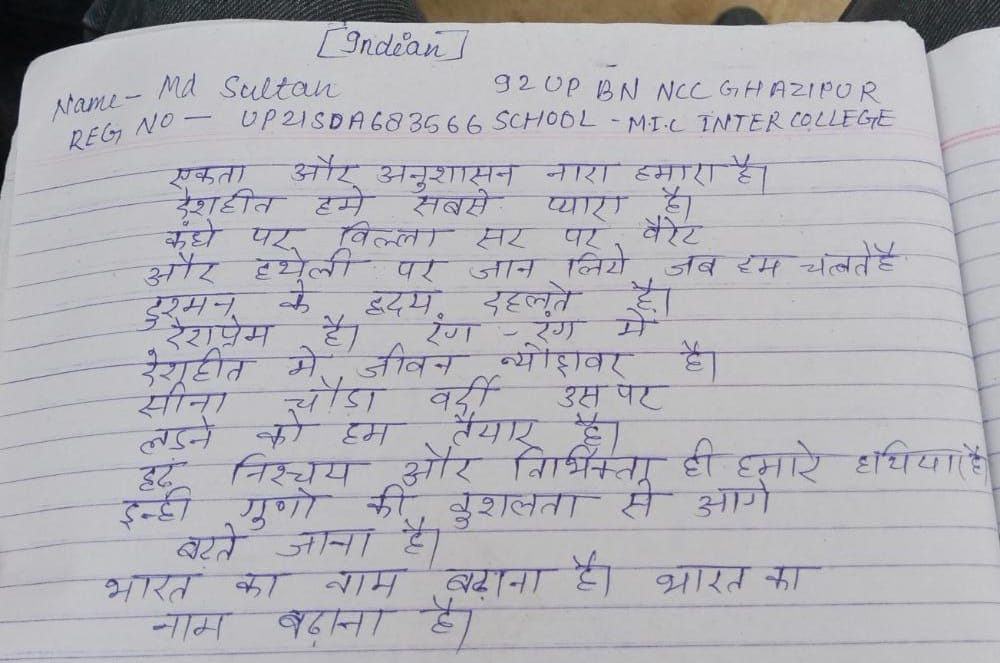 [Indian]
Name - Md Sultan 92 UP BN NCC GHAZIPUR
REG NO - UP21SDA683566 SCHOOL - M.I.C INTER COLLEGE
एकता और अनुशासन नारा हमारा है।
देशहीत हमे सबसे प्यारा है।
कंधे पर विल्ला सर पर वैरेट
और हथेली पर जान लिये जब हम चलते है
दुश्मन के हृदय दहलते है।
देशप्रेम है। रंग - रंग मे
देशहीत मे जीवन न्योछावर है।
सीना चौडा वर्दी उस पर
लडने को हम तैयार है।
दृढ निश्चय और निर्भिकता ही हमारे हथियार है
इन्ही गुणो की कुशलता से आगे
बरते जाना है।
भारत का नाम बढ़ाना है। भारत का
नाम बढ़ाना है।